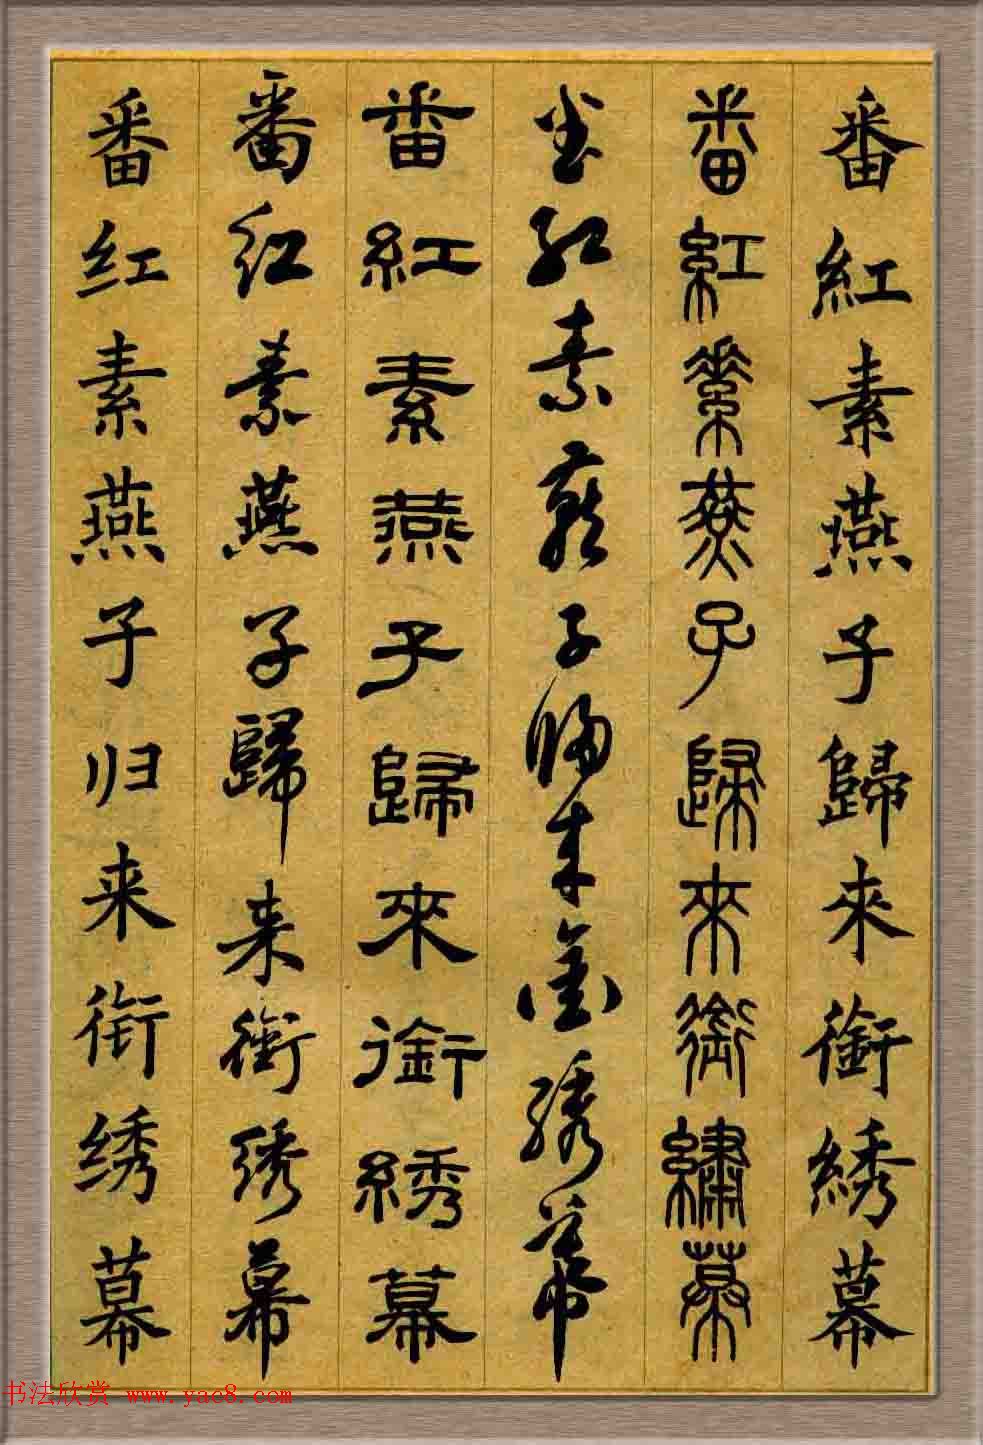 番紅素燕子歸來銜綉幕
番紅素燕子歸來銜繡幕
番红素燕子归来衔绣幕
番紅素燕子歸來銜綉幕
番红素燕子歸来衔绣幕
番红素燕子归来衔绣幕
书法欣赏 www.yac8.com